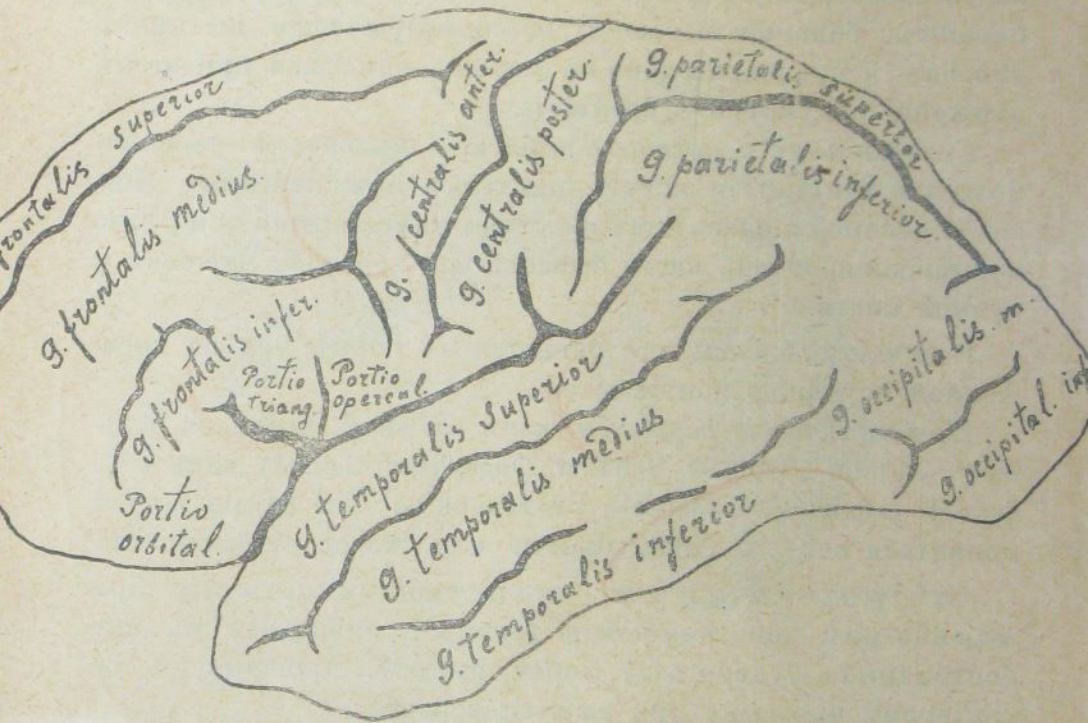 frontalis superior
g. frontalis medius.
g. frontalis infer.
Portio
triang.
Portio
opercul.
Portio
orbital.
g. centralis anter.
g. centralis poster.
g. parietalis superior
g. parietalis inferior.
g. temporalis superior
g. temporalis medius
g. temporalis inferior
g. occipitalis m.
g. occipital. inf